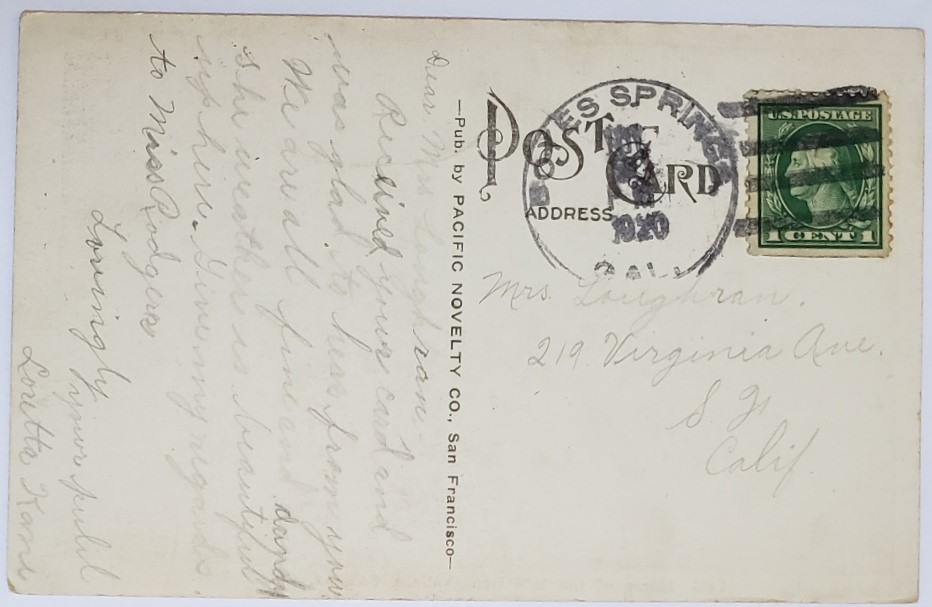 Dear Mrs Loughran
Recieved your card and
was glad to hear from you
We are all fine and dandy
The weather is beautiful
up here. Give my regards
to Miss Rodgers
Lovingly
your pupil
Loretta Kane
—Pub. by PACIFIC NOVELTY CO., San Francisco—
POST CARD
ADDRESS
ES SPRINGS
1920
CALI
U.S. POSTAGE
1 CENT 1
Mrs. Loughran.
219 Virginia Ave.
S. F
Calif.